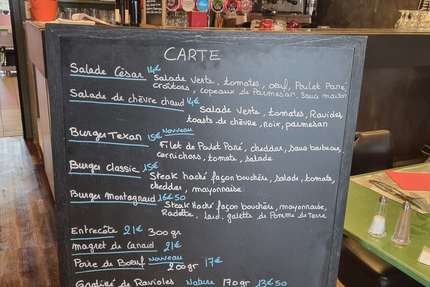 CARTE
Salade César 14€
Salade verte, tomates, oeuf, Poulet Pané,
croutons, copeaux de Parmesan, sauce maison
Salade de chèvre chaud 14€
Salade Verte, tomates, Ravioles,
toasts de chèvre, noix, parmesan
Burger Texan 15€ Nouveau
Filet de Poulet Pané, cheddar, sauce barbecue,
cornichons, tomate, salade
Burger Classic 15€
Steak haché façon bouchère, salade, tomate,
cheddar, mayonnaise
Burger Montagnard 16€50
Steak Haché façon bouchère, mayonnaise,
Raclette, lard, galette de Pomme de Terre
Entrecôte 21€ 300 grs
magret de Canard 21€
Poire de Boeuf Nouveau 200 grs 17€
Gratiné de Ravioles Nature 170 gr 13€50